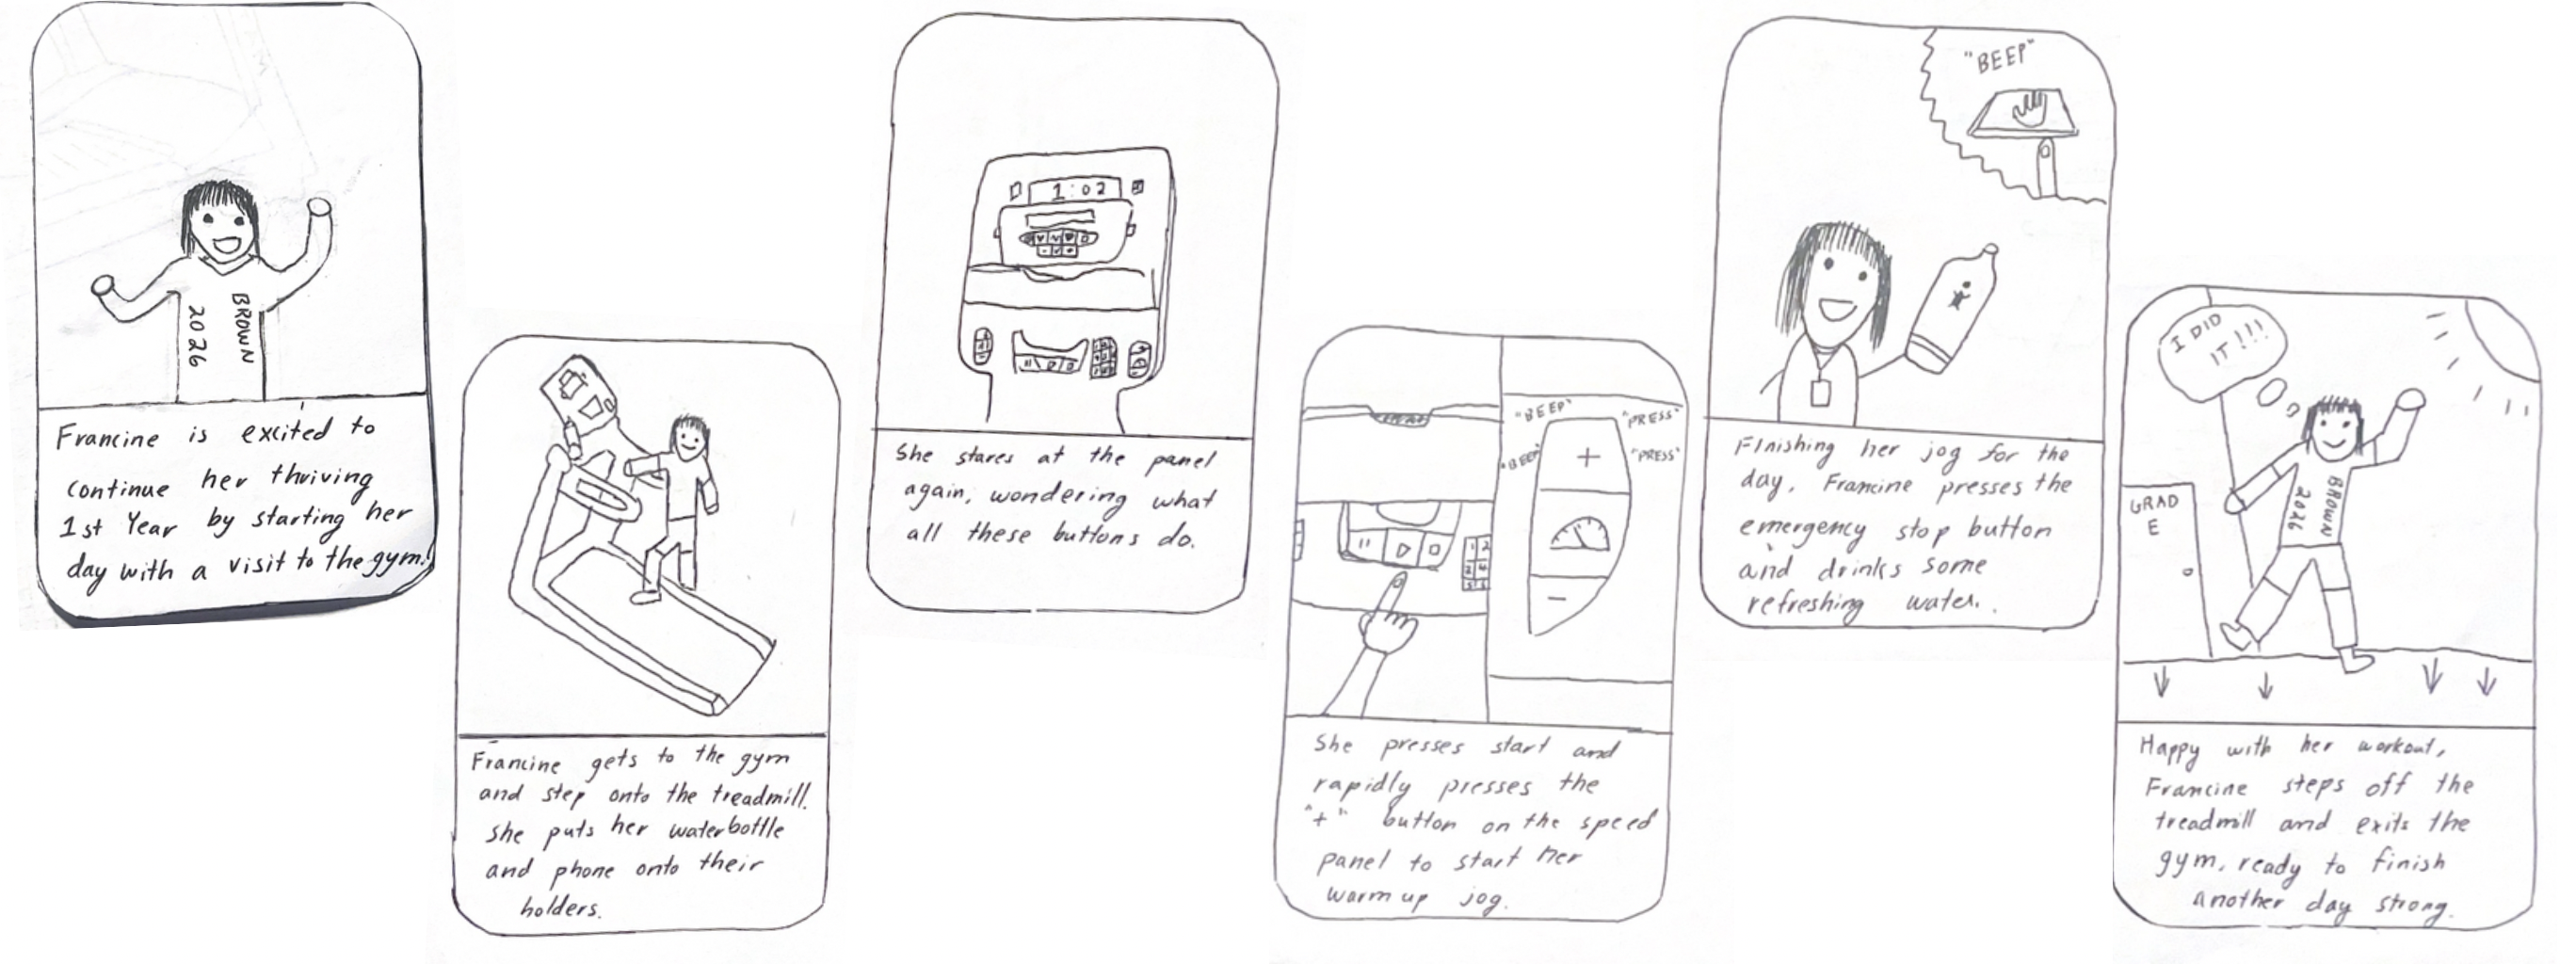 BROWN
2026
Francine is excited to
continue her thriving
1st Year by starting her
day with a visit to the gym!
Francine gets to the gym
and step onto the treadmill.
she puts her waterbottle
and phone onto their
holders.
1:02
She stares at the panel
again, wondering what
all these buttons do.
"BEEP"
"PRESS"
"BEEP"
"PRESS"
+
−
She presses start and
rapidly presses the
"+" button on the speed
panel to start her
warm up jog.
"BEEP"
FInishing her jog for the
day, Francine presses the
emergency stop button
and drinks some
refreshing water.
I DID
IT!!!
GRAD
E
BROWN
2026
Happy with her workout,
Francine steps off the
treadmill and exits the
gym, ready to finish
another day strong.